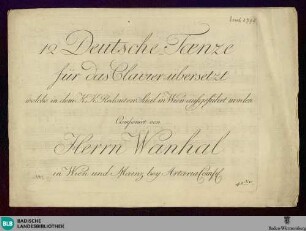 12 Deutsche Tanze
für das Clavier übersetzt
welche in dem K. K. Redouten Saal in Wien aufgeführet worden
Componiert von
Herrn Wanhal
in Wien und Mainz bey Artaria Comp.
BLB
BADISCHE
LANDESBIBLIOTHEK
Baden-Württemberg